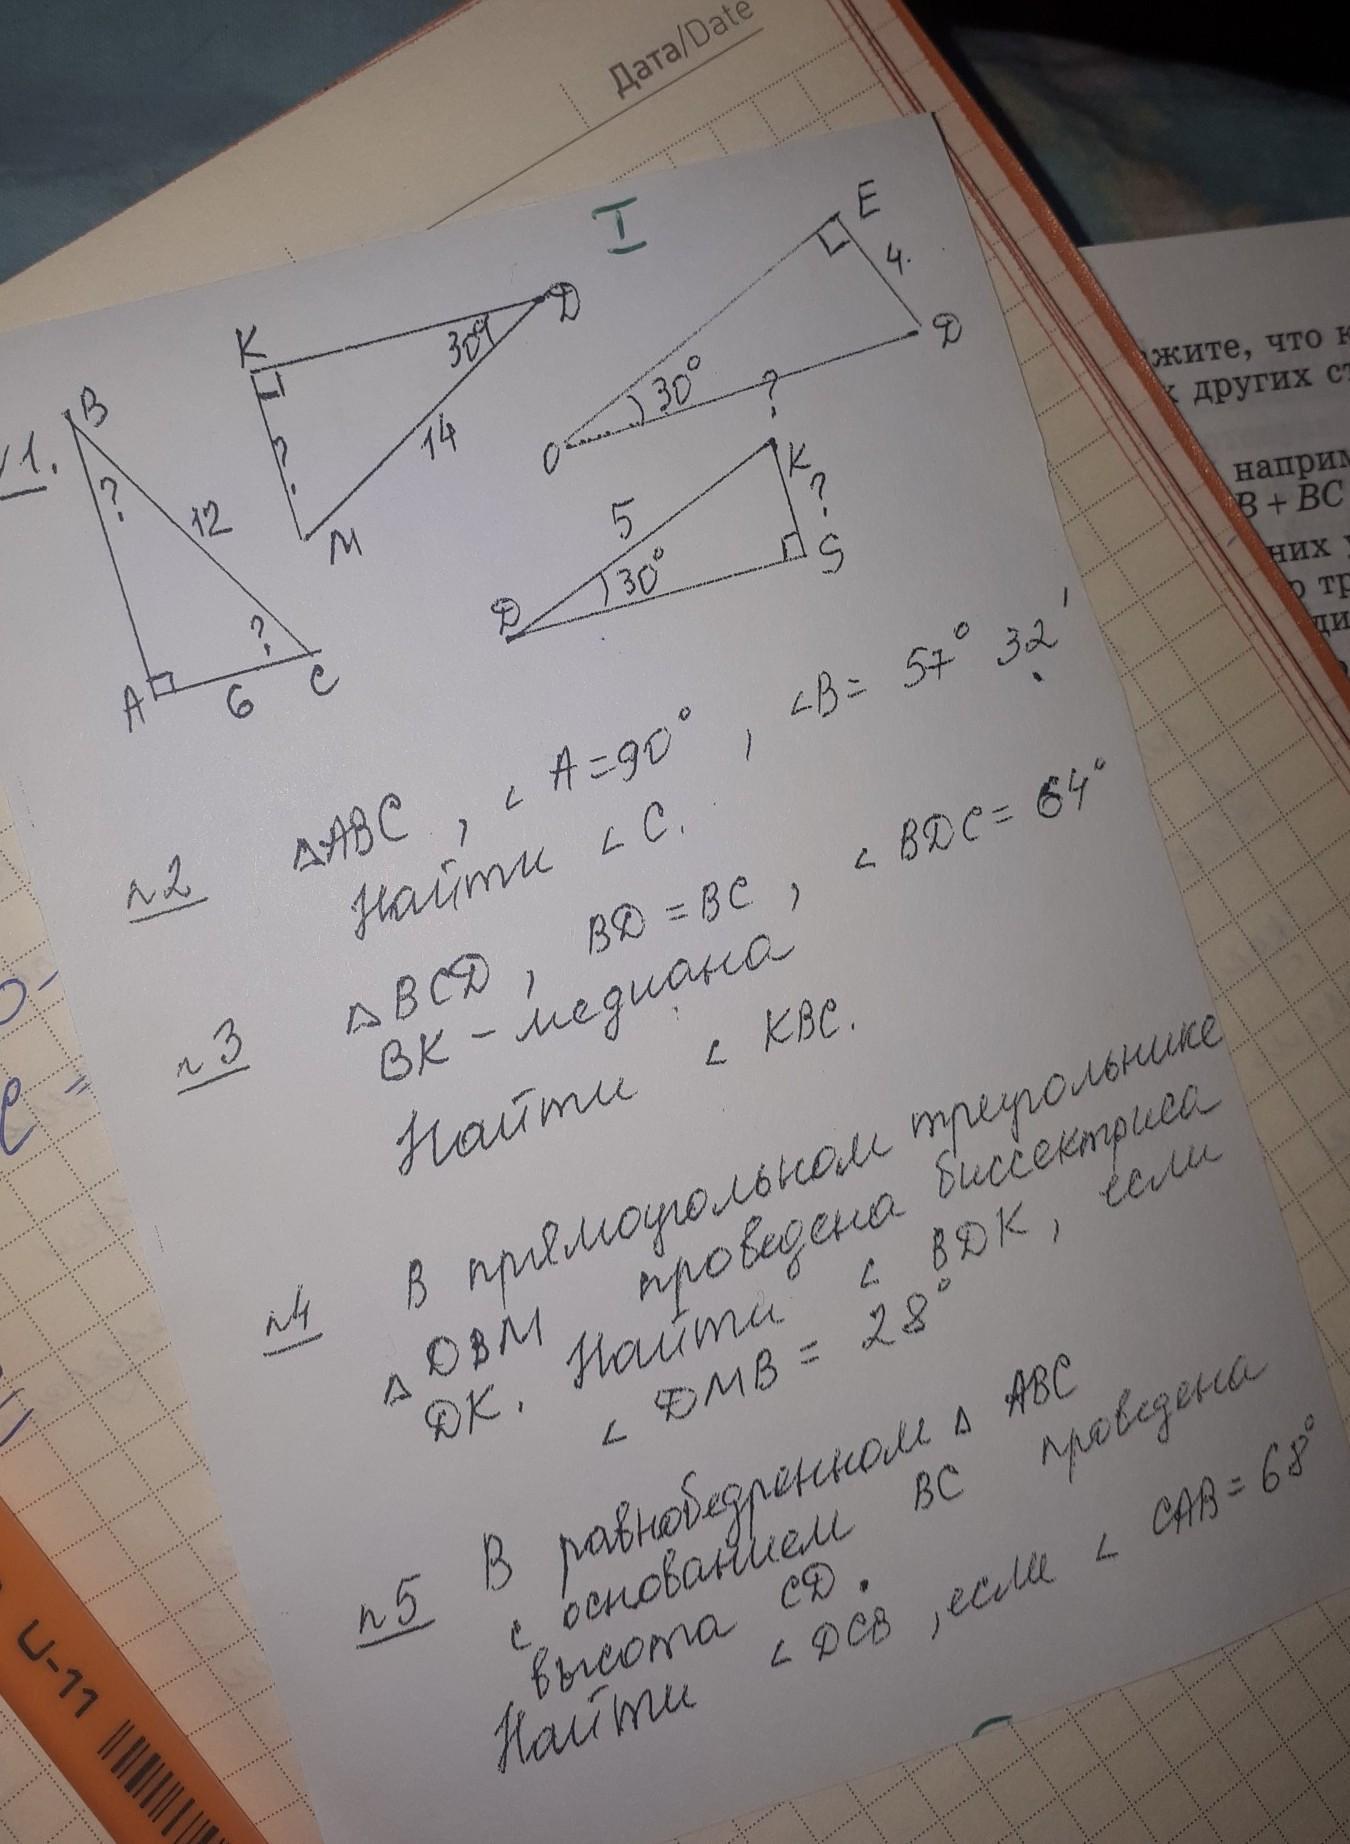 Дата/Date
I
1.
B
?
12
?
A
6
C
K
30°
D
?
14
M
E
4.
30°
?
O
D
5
K
?
30°
D
S
n2 △ABC, ∠A=90°, ∠B= 57° 32'
Найти ∠C.
n3 △BCD, BD=BC, ∠BDC= 64°
BK - медиана
Найти ∠KBC.
n4 В прямоугольном треугольнике
△DBM проведена биссектриса
DK. Найти ∠BDK, если
∠DMB = 28°
n5 В равнобедренном △ ABC
с основанием BC проведена
высота CD.
Найти ∠DCB, если ∠CAB=68°
U-11
ажите, что к
х других ст
наприм
B + BC
них у